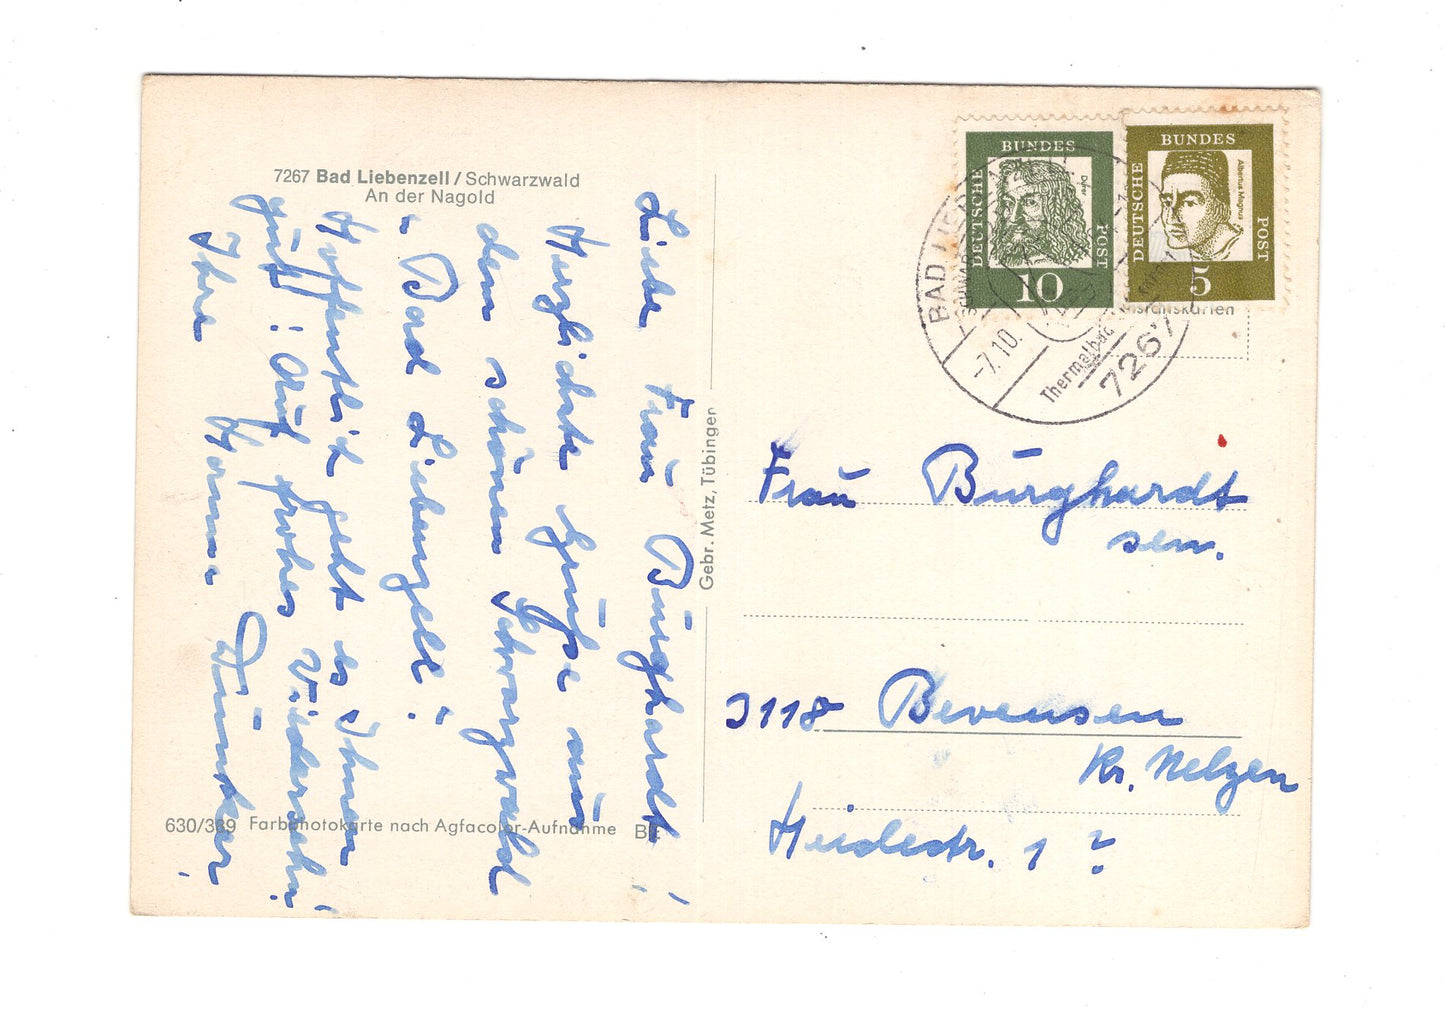 7267 Bad Liebenzell / Schwarzwald
An der Nagold
Liebe Frau Burghardt!
Herzlichste Grüße aus
dem schönen Schwarzwald
"Bad Liebenzell"!
Hoffentlich geht es Ihnen
gut! Auf frohes Wiedersehn!
Ihre Hanna Dünker.
630/389 Farbphotokarte nach Agfacolor-Aufnahme
Gebr. Metz, Tübingen
BUNDES
DEUTSCHE
POST
Dürer
10
BUNDES
DEUTSCHE
POST
Albertus Magnus
5
BAD LIEBENZELL
-7.10.
Thermalbad
7267
Frau Burghardt
sen.
3118 Bevensen
Kr. Uelzen
Heidestr. 1?